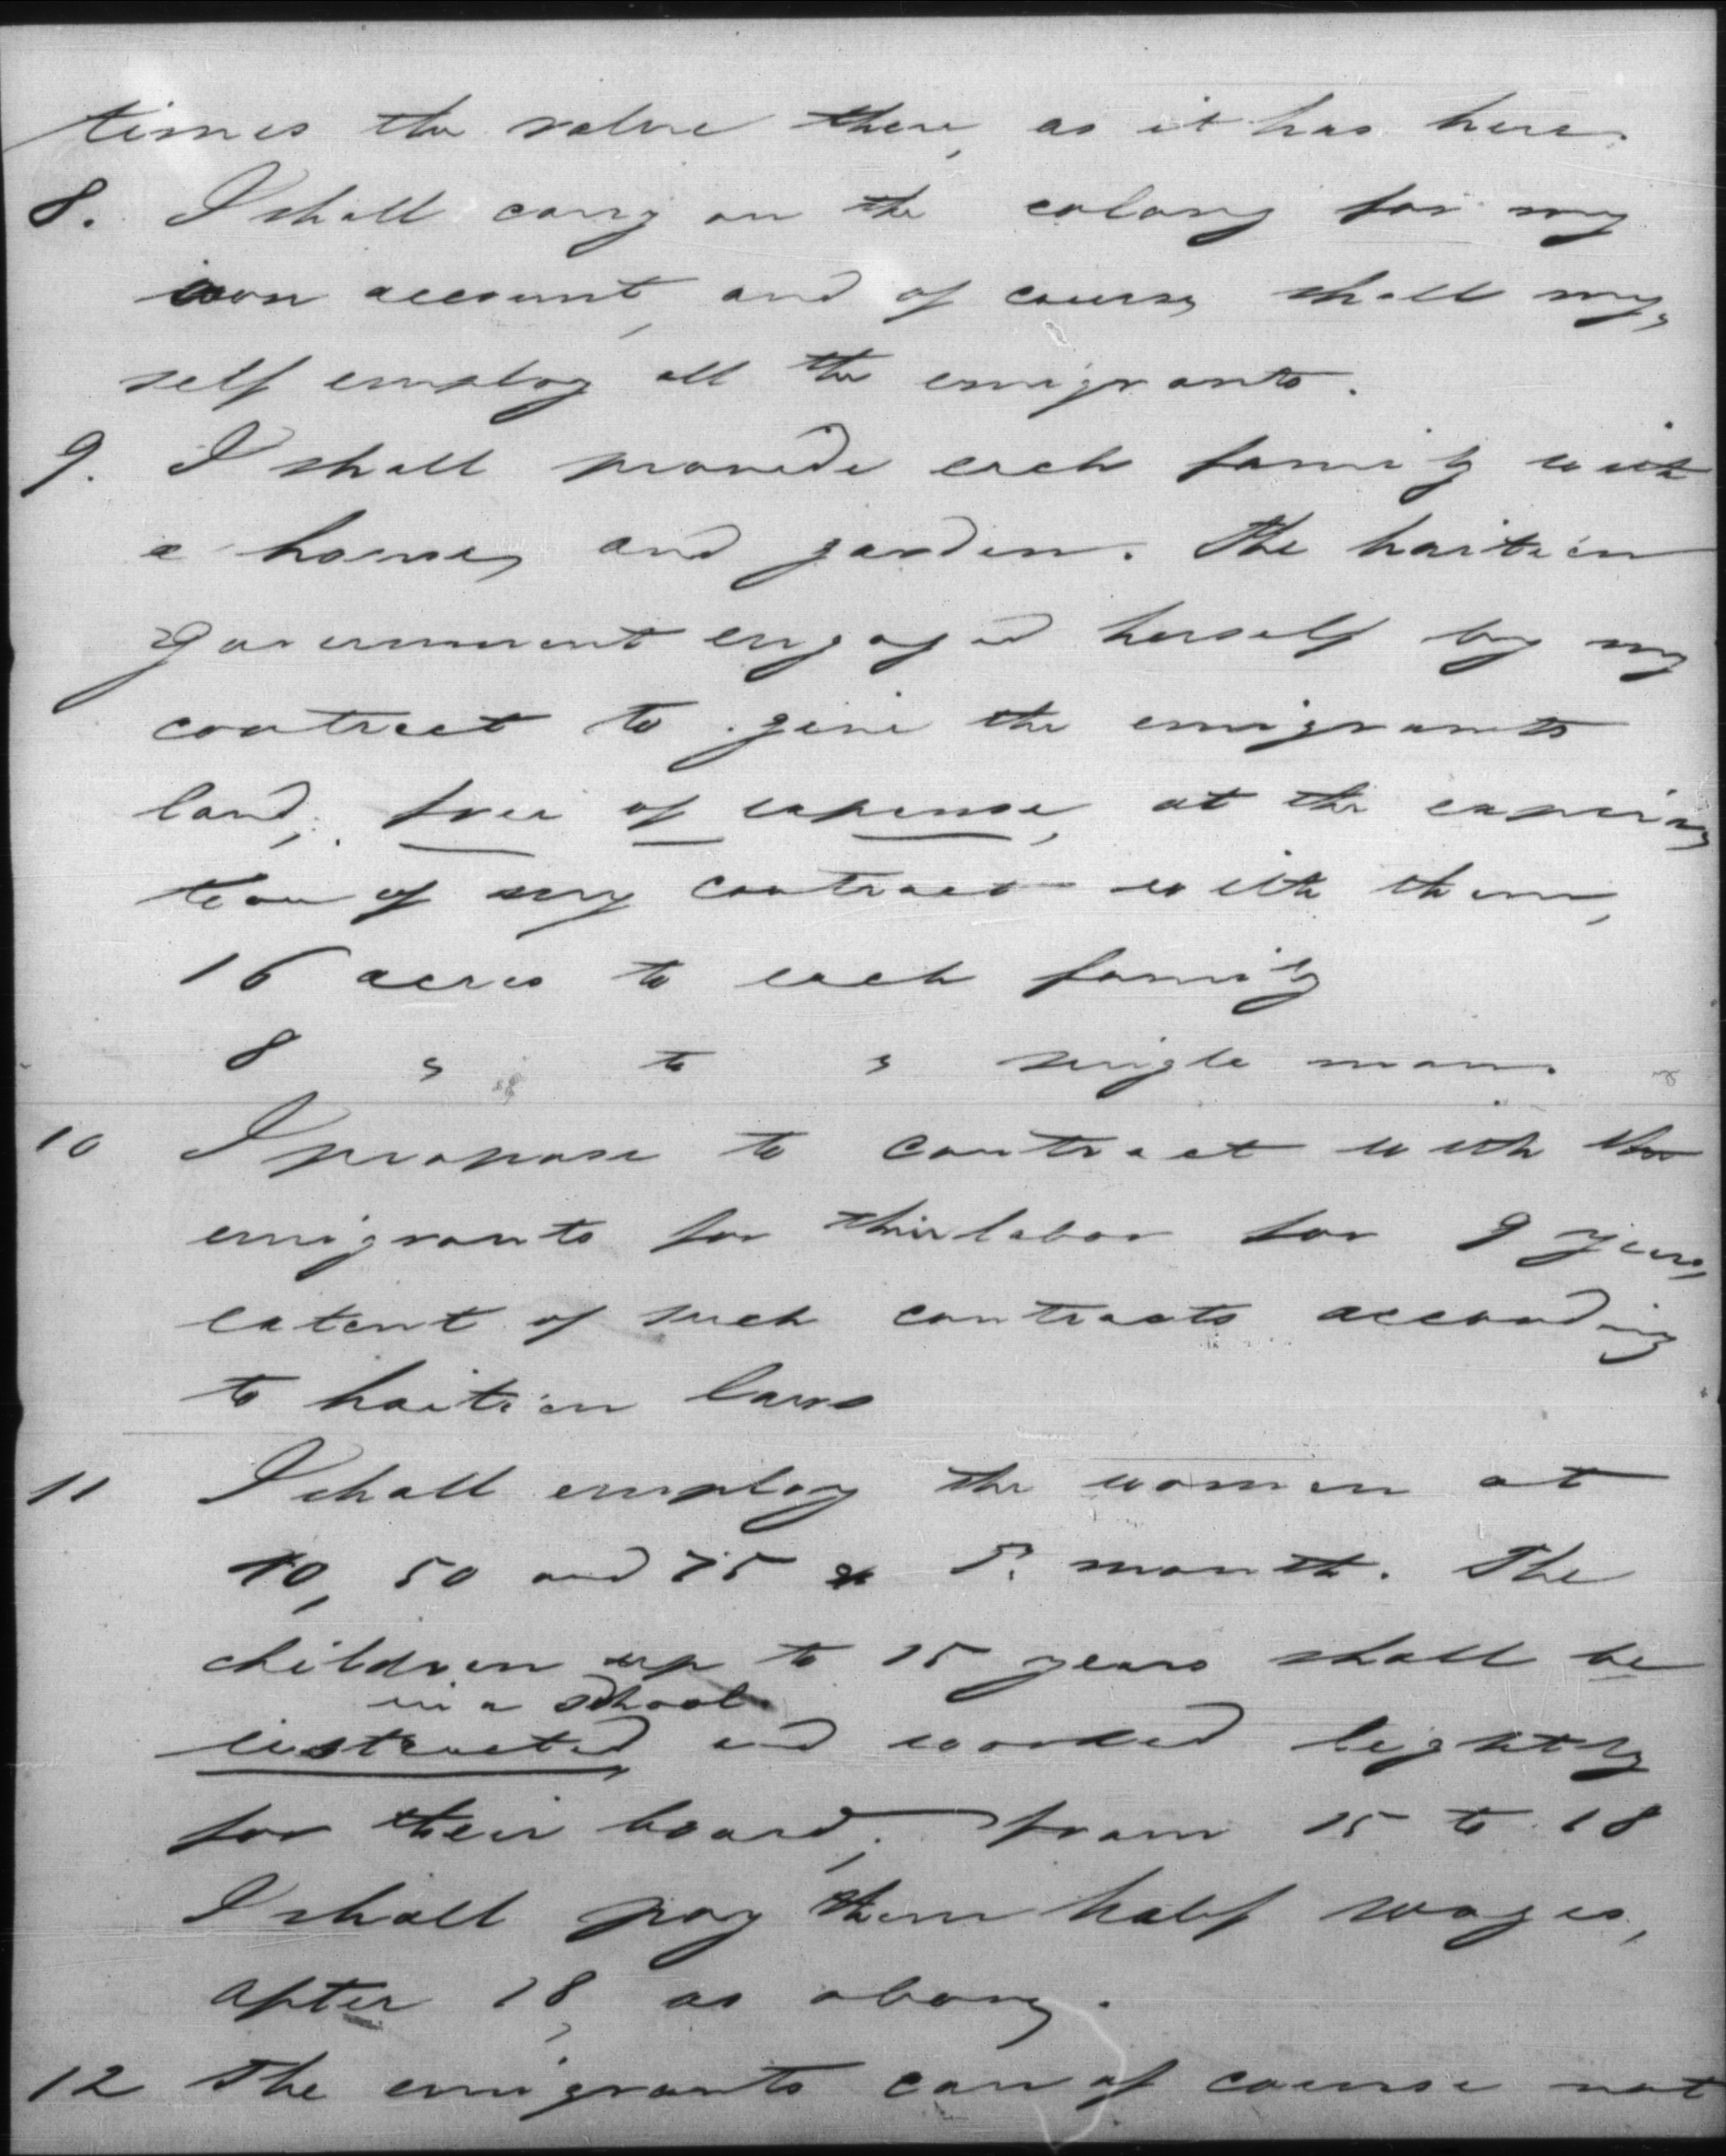 times the value there, as it has here.
8. I shall carry on the colony for my
own account, and of course shall my,
self employ all the emigrants.
9. I shall provide each family with
a house, and garden. The haitien
government engaged herself by my
contract to give the emigrants
land, free of expense, at the expira,
tion of my contract with them,
16 acres to each family
8 " to " single man.
10 I propose to contract with the
emigrants for their labor for 9 years,
extent of such contracts according
to haitien laws
11 I shall employ the women at
40, 50 and 75 P. month. The
children up to 15 years shall be
in a school
instructed and worked lightly
for their board, from 15 to 18
I shall pay them half wages,
after 18, as above.
12 The emigrants can of course not